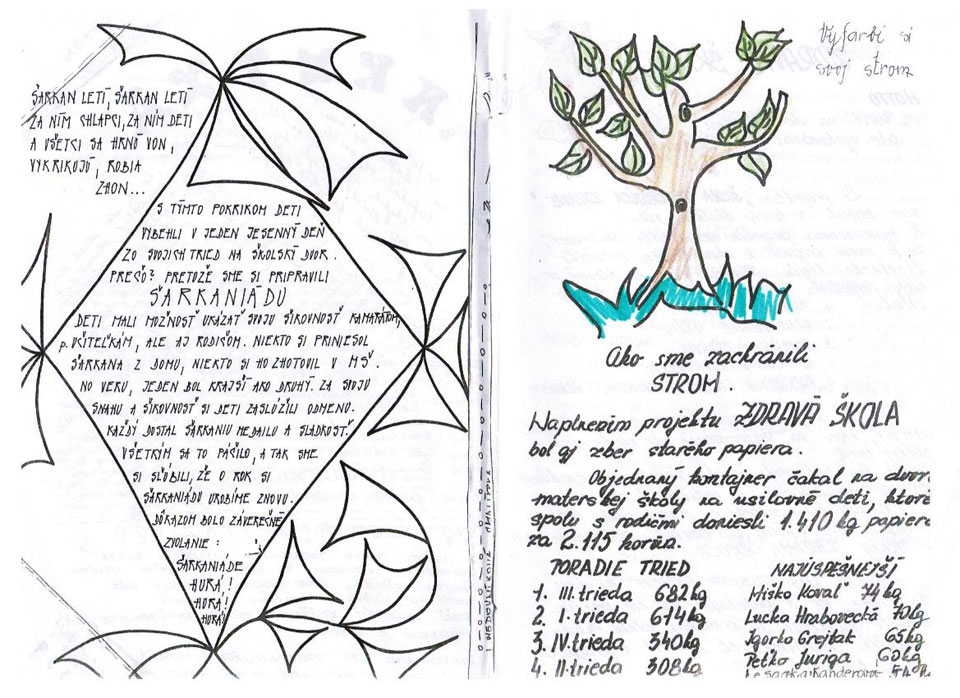 ŠARKAN LETÍ, ŠARKAN LETÍ
ZA NÍM CHLAPCI, ZA NÍM DETI
A VŠETCI SA HRNÚ VON,
VYKRIKUJÚ, ROBIA
ZHON...
S TÝMTO POKRIKOM DETI
VYBEHLI V JEDEN JESENNÝ DEŇ
ZO SVOJICH TRIED NA ŠKOLSKÝ DVOR.
PREČO? PRETOŽE SME SI PRIPRAVILI
ŠARKANIÁDU
DETI MALI MOŽNOSŤ UKÁZAŤ SVOJU ŠIKOVNOSŤ KAMARÁTOM,
p. UČITEĽKÁM, ALE AJ RODIČOM. NIEKTO SI PRINIESOL
ŠARKANA Z DOMU, NIEKTO SI HO ZHOTOVIL V MŠ.
NO VERU, JEDEN BOL KRAJŠÍ AKO DRUHÝ. ZA SVOJU
SNAHU A ŠIKOVNOSŤ SI DETI ZASLÚŽILI ODMENU.
KAŽDÝ DOSTAL ŠARKANIU MEDAILU A SLADKOSŤ.
VŠETKÝM SA TO PÁČILO, A TAK SME
SI SĽÚBILI, ŽE O ROK SI
ŠARKANIÁDU UROBÍME ZNOVU.
DÔKAZOM BOLO ZÁVEREČNÉ
ZVOLANIE :
ŠARKANIÁDE
HURÁ!
HURÁ!
HURÁ!
Vyfarbi si
svoj strom
Ako sme zachránili
STROM
Naplnením projektu ZDRAVÁ ŠKOLA
bol aj zber starého papiera.
Objednaný kontajner čakal na dvore
materskej školy na usilovné deti, ktoré
spolu s rodičmi doniesli 1.410 kg papiera
za 2.115 korún.
PORADIE TRIED
1. III. trieda 682 kg
2. I. trieda 614 kg
3. IV. trieda 340 kg
4. II. trieda 308 kg
NAJÚSPEŠNEJŠÍ
Miško Kovaľ 74 kg
Lucka Hrabovecká 70 kg
Igorko Grejtak 65 kg
Peťko Juriga 60 kg